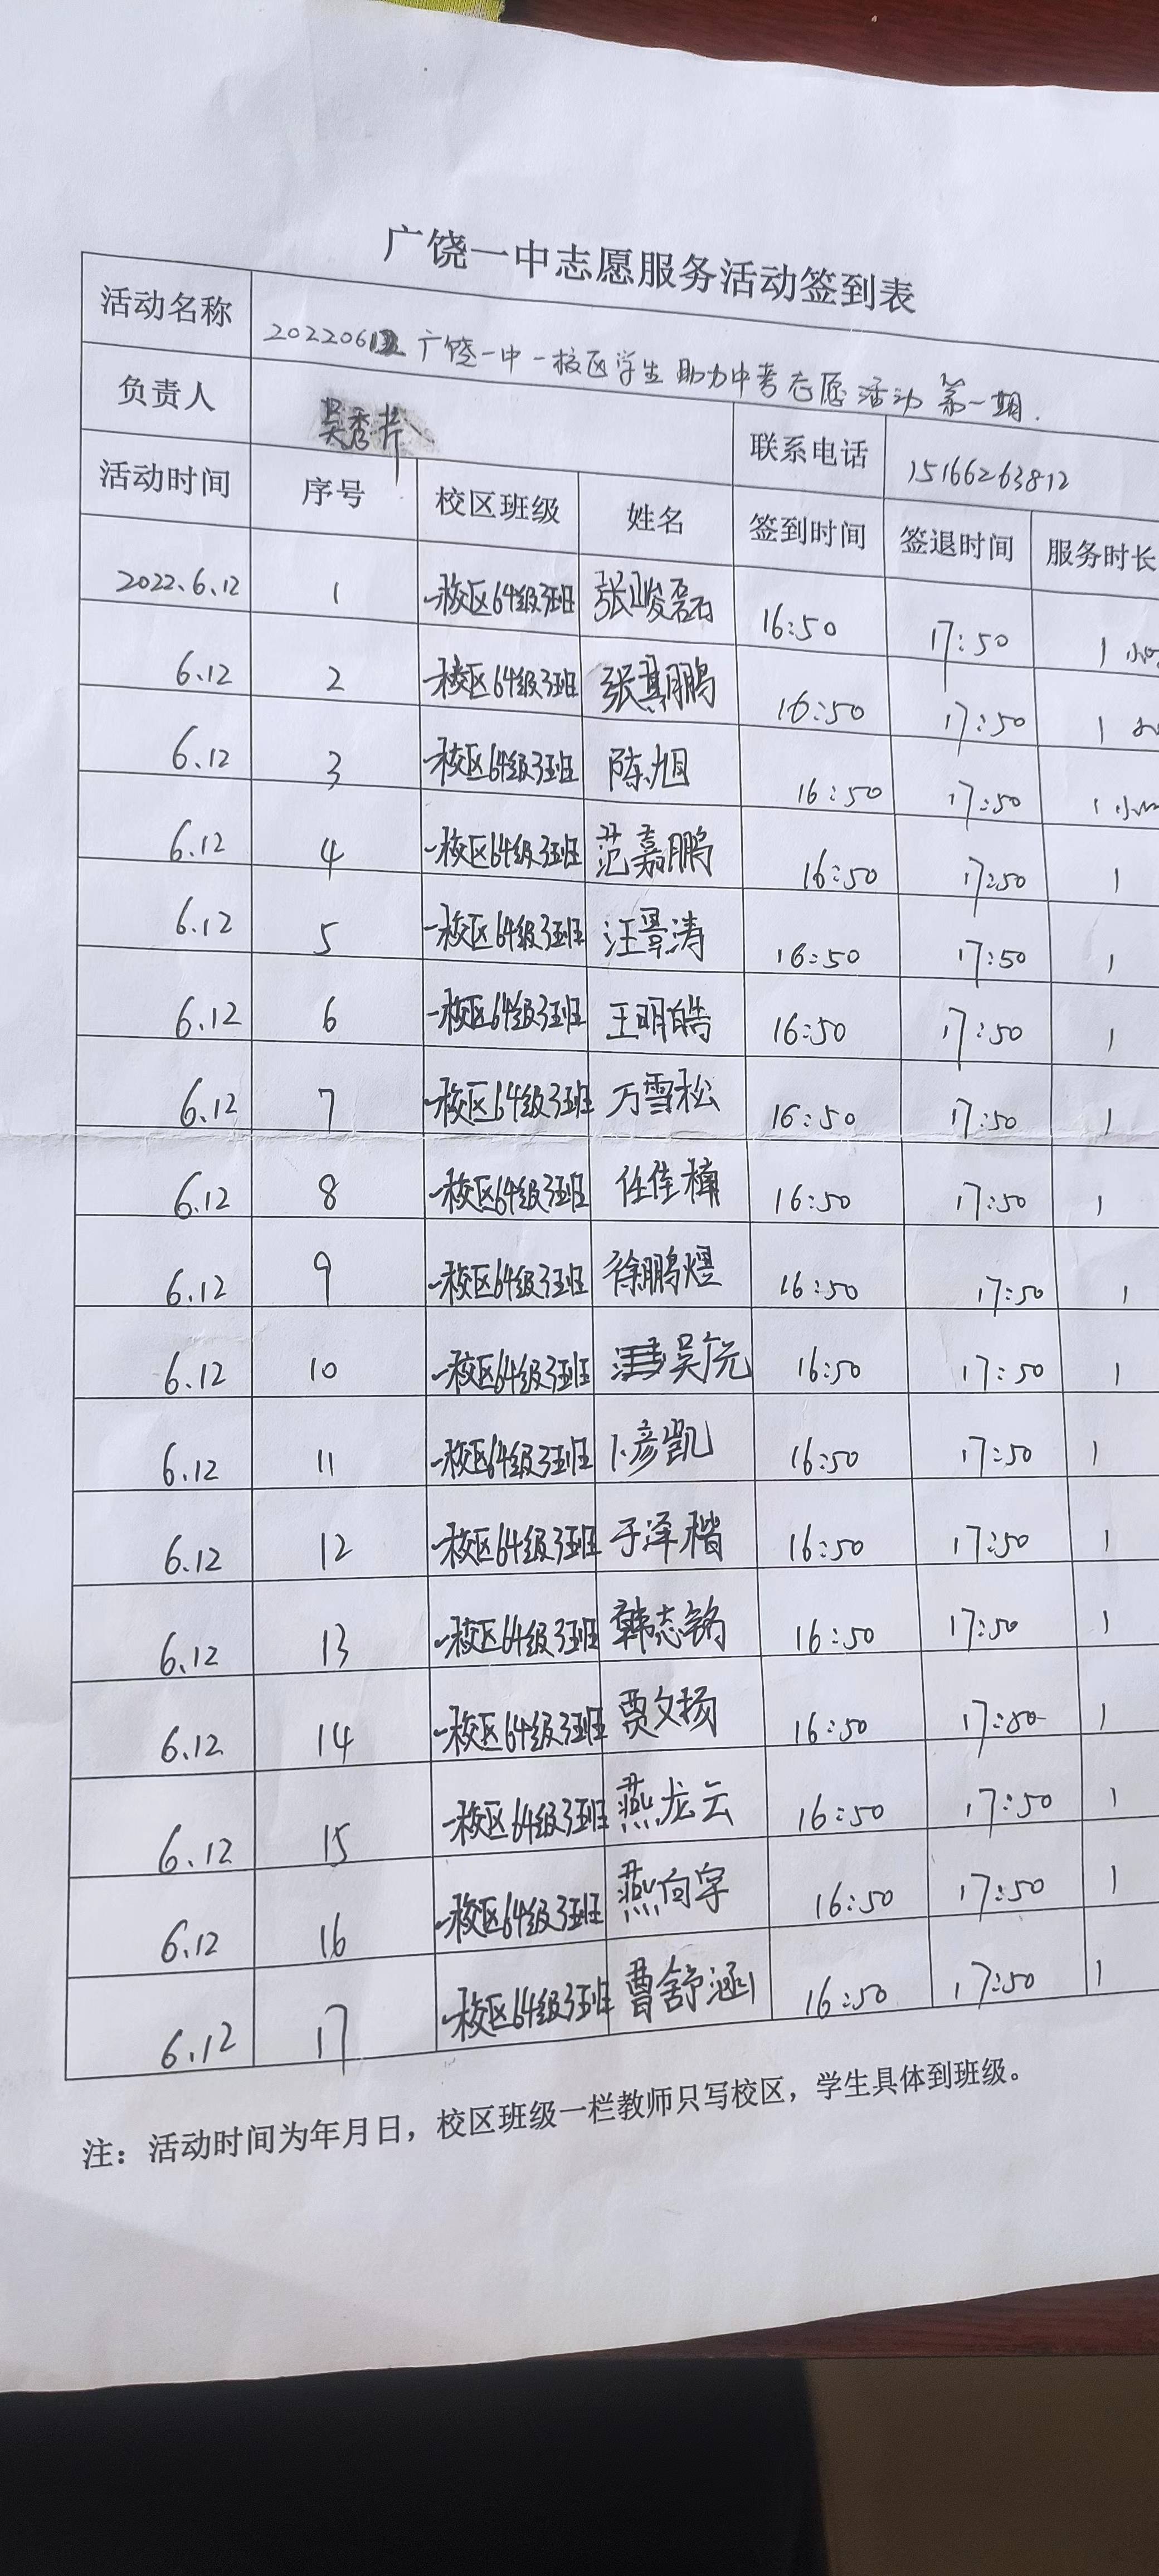 广饶一中志愿服务活动签到表
活动名称 20220612 广饶一中一校区学生助力中考志愿活动第一期.
负责人 吴秀芹 联系电话 15166263812
活动时间 序号 校区班级 姓名 签到时间 签退时间 服务时长
2022.6.12 1 一校区64级3班 张峻磊 16:50 17:50 1小时
6.12 2 一校区64级3班 张其鹏 16:50 17:50 1
6.12 3 一校区64级3班 陈旭 16:50 17:50 1小时
6.12 4 一校区64级3班 范嘉鹏 16:50 17:50 1
6.12 5 一校区64级3班 汪晋涛 16:50 17:50 1
6.12 6 一校区64级3班 王明皓 16:50 17:50 1
6.12 7 一校区64级3班 万雪松 16:50 17:50 1
6.12 8 一校区64级3班 任佳楠 16:50 17:50 1
6.12 9 一校区64级3班 徐鹏煜 16:50 17:50 1
6.12 10 一校区64级3班 吴广元 16:50 17:50 1
6.12 11 一校区64级3班 卜彦凯 16:50 17:50 1
6.12 12 一校区64级3班 于泽楷 16:50 17:50 1
6.12 13 一校区64级3班 韩志铭 16:50 17:50 1
6.12 14 一校区64级3班 贾文扬 16:50 17:50 1
6.12 15 一校区64级3班 燕龙云 16:50 17:50 1
6.12 16 一校区64级3班 燕向宇 16:50 17:50 1
6.12 17 一校区64级3班 曹舒涵 16:50 17:50 1
注：活动时间为年月日，校区班级一栏教师只写校区，学生具体到班级。